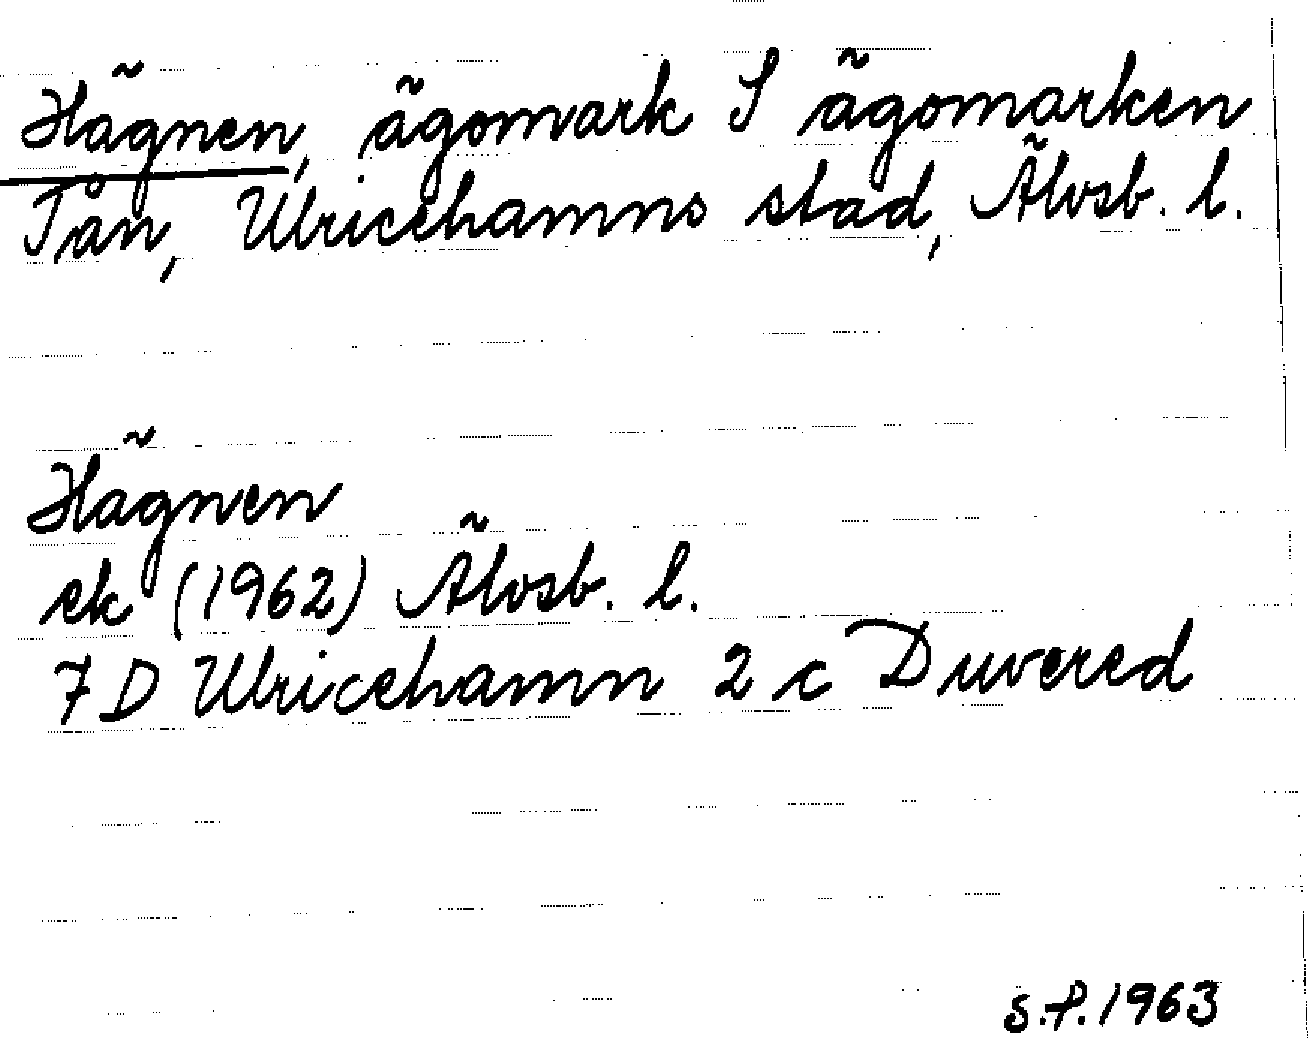 Hägnen, ägomark S ägomarken
Tån, Ulricehamns stad, Älvsb. l.
Hägnen
ek (1962) Älvsb. l.
7 D Ulricehamn 2 c Duvered
S.P. 1963